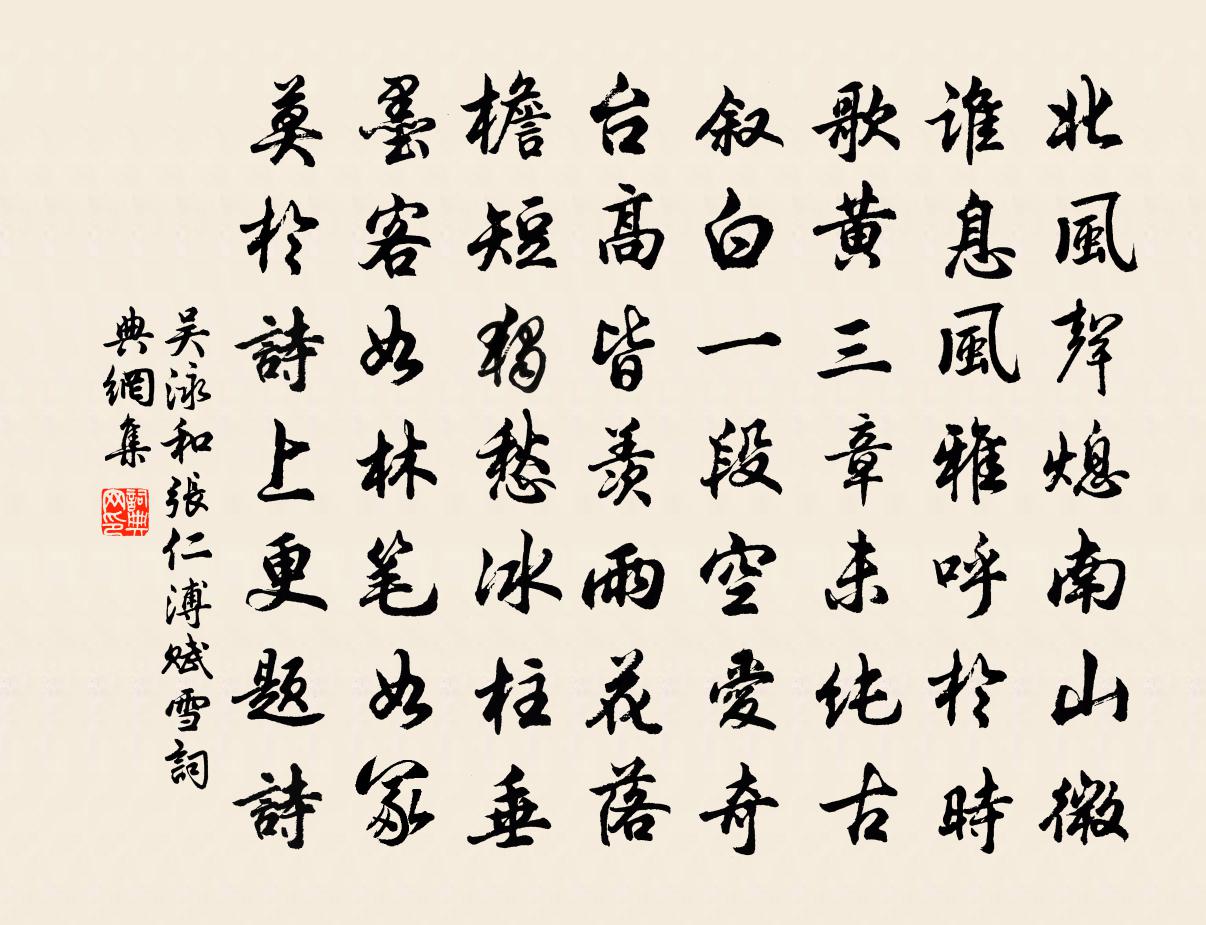 北風聲熄南山微
谁息風雅呼於時
歌黄三章未纯古
叙白一段空愛奇
台高皆羨雨花落
檐短獨愁冰柱垂
墨客如林笔如冢
莫於詩上更题詩
吴泳和張仁溥赋雪詞
典網集
詞典
网印